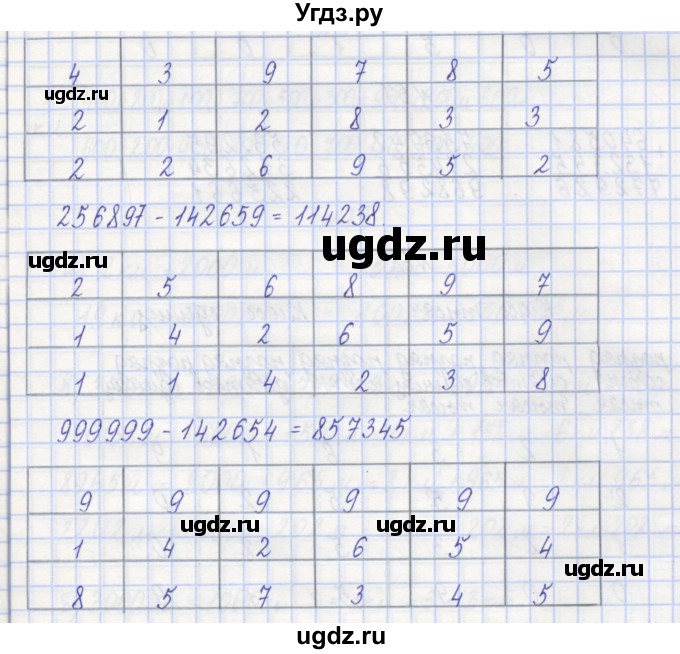 Угдз.ру
4 3 9 7 8 5
ugdz.ru
2 1 2 8 3 3
2 2 6 9 5 2
256897 - 142659 = 114238
ugdz.ru
ugdz.ru
2 5 6 8 9 7
1 4 2 6 5 9
1 1 4 2 3 8
999999 - 142654 = 857345
9 9 9 9 9 9
ugdz.ru ugdz.ru
1 4 2 6 5 4
ugdz.ru
8 5 7 3 4 5
ugdz.ru